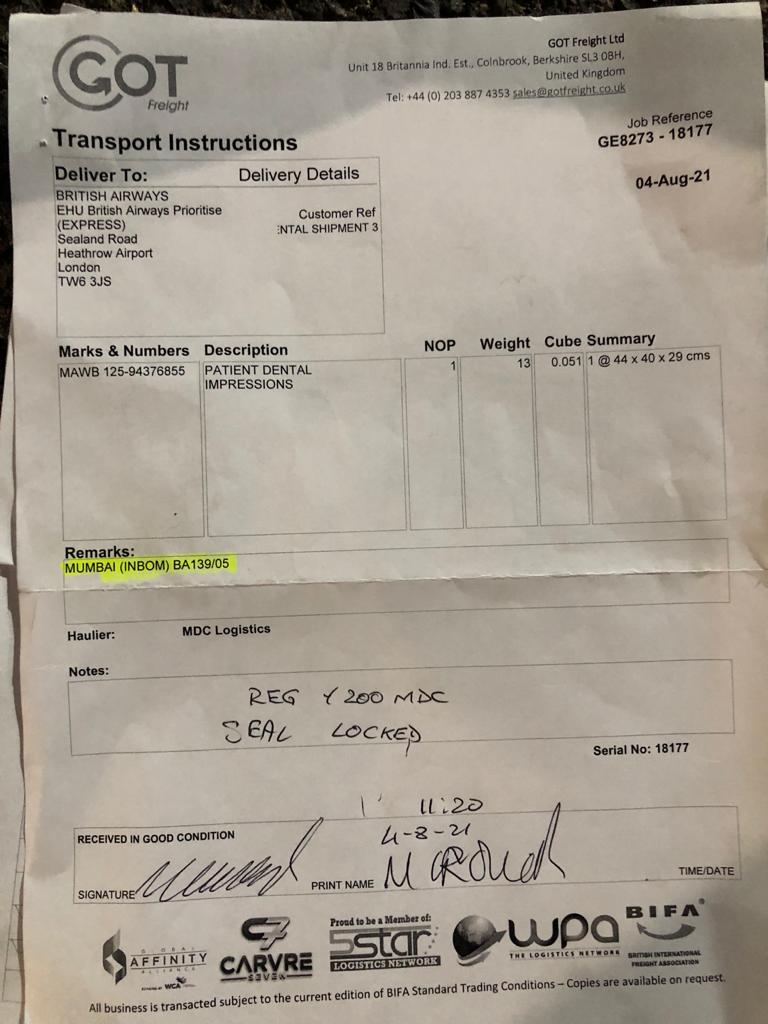 GOT
Freight
GOT Freight Ltd
Unit 18 Britannia Ind. Est., Colnbrook, Berkshire SL3 0BH,
United Kingdom
Tel: +44 (0) 203 887 4353 sales@gotfreight.co.uk
Job Reference
GE8273 - 18177
04-Aug-21
Transport Instructions
Deliver To: Delivery Details
BRITISH AIRWAYS
EHU British Airways Prioritise
(EXPRESS)
Sealand Road
Heathrow Airport
London
TW6 3JS
Customer Ref
ENTAL SHIPMENT 3
Marks & Numbers Description NOP Weight Cube Summary
MAWB 125-94376855 PATIENT DENTAL 1 13 0.051 1 @ 44 x 40 x 29 cms
IMPRESSIONS
Remarks:
MUMBAI (INBOM) BA139/05
Haulier: MDC Logistics
Notes:
REG Y200 MDC
SEAL LOCKED
Serial No: 18177
11:20
4-8-21
RECEIVED IN GOOD CONDITION
SIGNATURE PRINT NAME M TIME/DATE
GLOBAL
AFFINITY
ALLIANCE
POWERED BY WCA
C7
CARVRE
SEVEN
Proud to be a Member of:
5star
LOGISTICS NETWORK
wpa
THE LOGISTICS NETWORK
BIFA
BRITISH INTERNATIONAL
FREIGHT ASSOCIATION
All business is transacted subject to the current edition of BIFA Standard Trading Conditions – Copies are available on request.